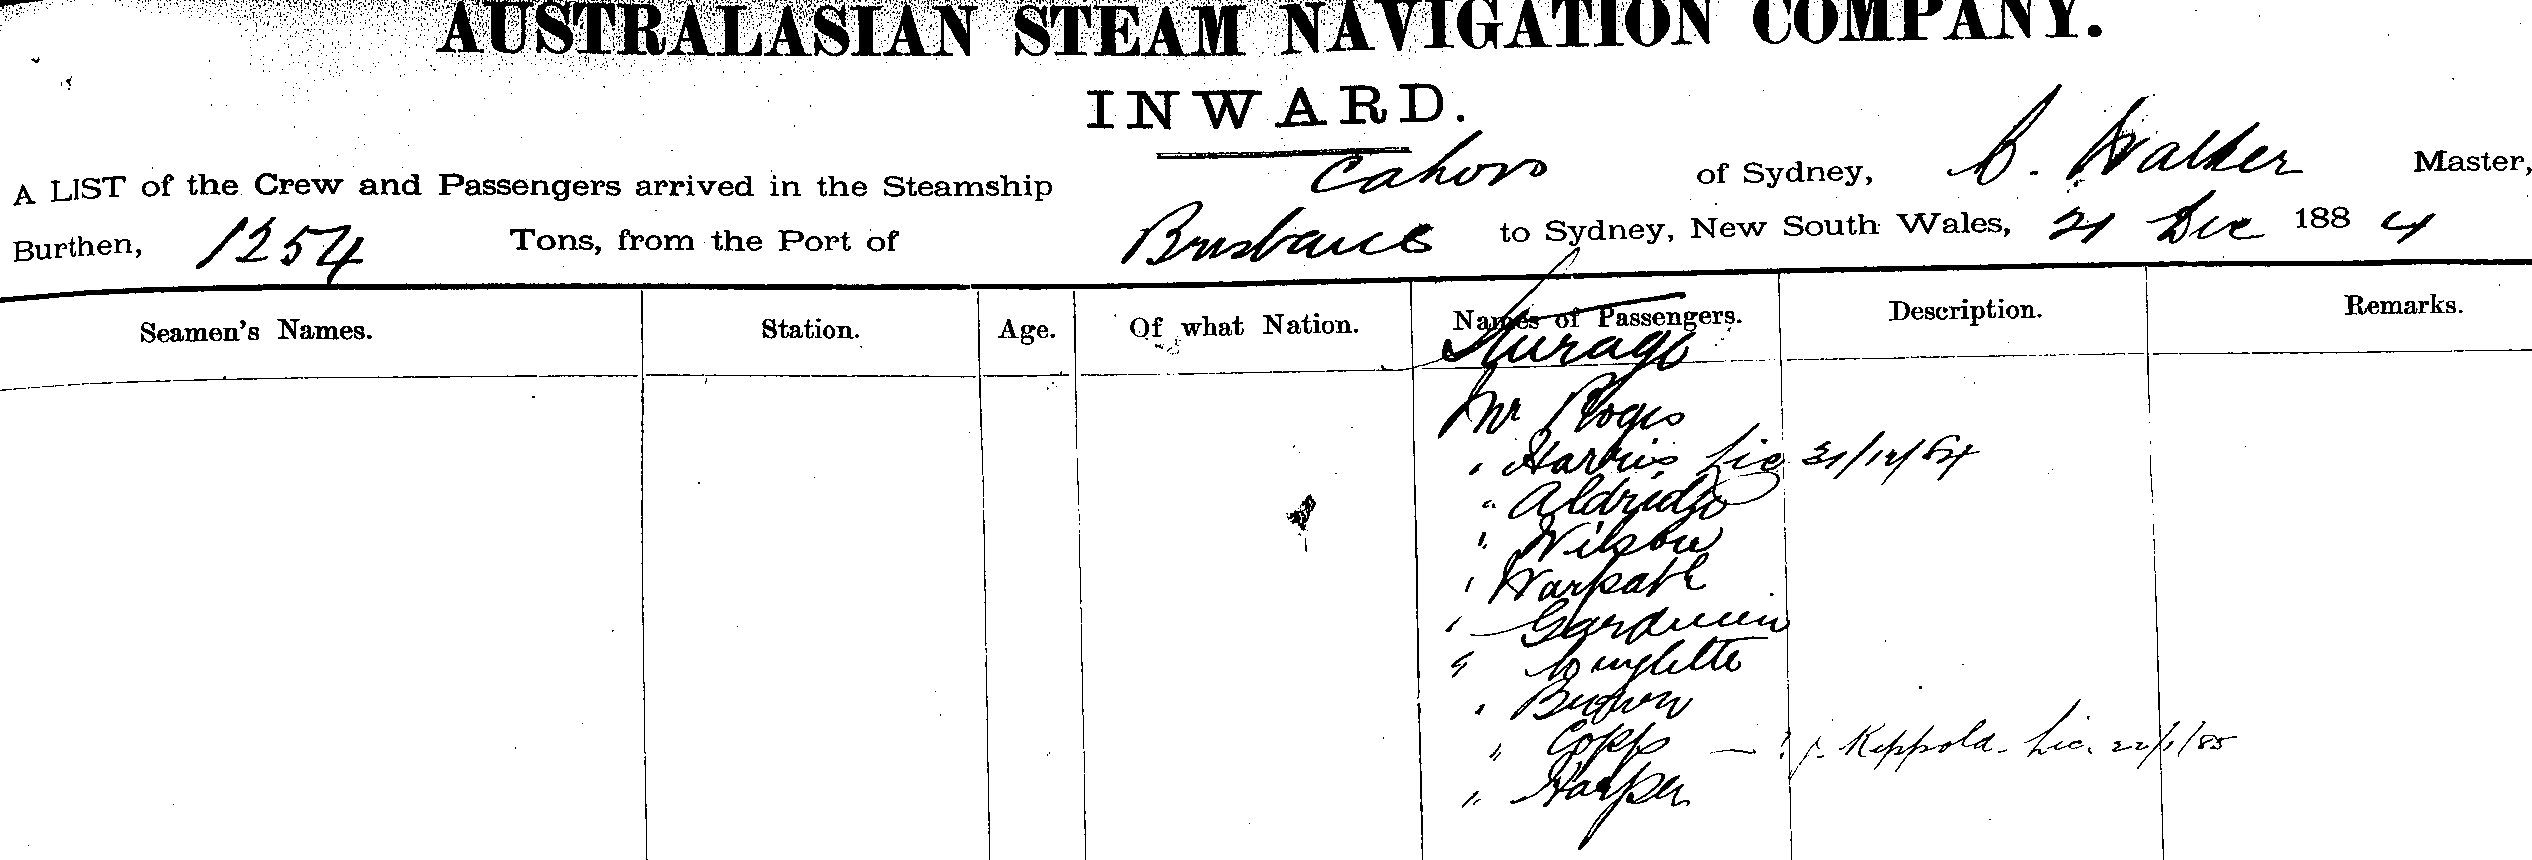 AUSTRALASIAN STEAM NAVIGATION COMPANY.
INWARD.
A LIST of the Crew and Passengers arrived in the Steamship Cahors of Sydney, C. Walker Master,
Burthen, 1254 Tons, from the Port of Brisbane to Sydney, New South Wales, 21 Dec 1884
Seamen's Names. Station. Age. Of what Nation. Names of Passengers. Description. Remarks.
Steerage
Mr
" Harris Lic 31/12/84
" Aldridge
" Wilson
" Warpath
"
"
" Brown
" Copp — ? J. Keppold - Lic. 22/1/85
" Harper